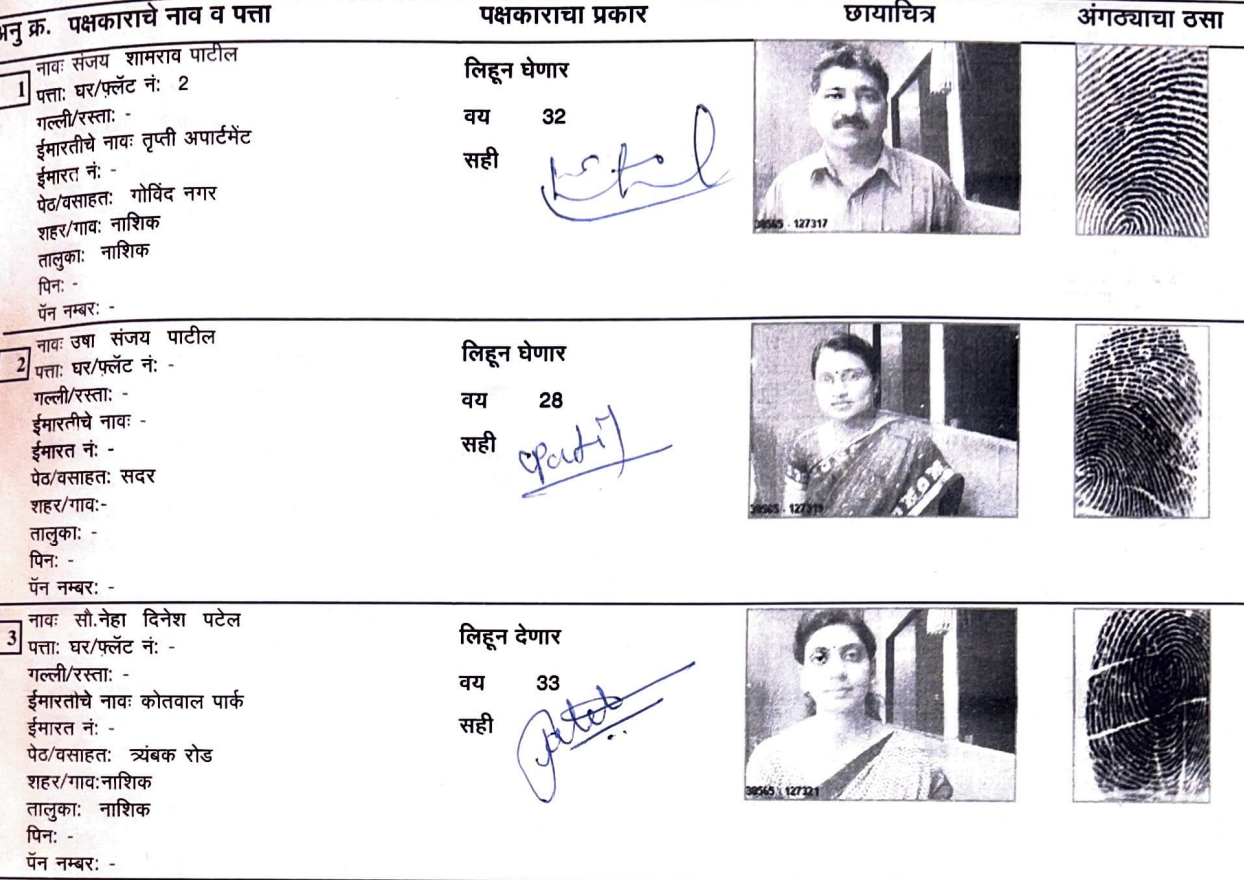 अनु क्र. पक्षकाराचे नाव व पत्ता पक्षकाराचा प्रकार छायाचित्र अंगठ्याचा ठसा
1 नावः संजय शामराव पाटील
पत्ताः घर/फ़्लॅट नंः 2
गल्ली/रस्ताः -
ईमारतीचे नावः तृप्ती अपार्टमेंट
ईमारत नंः -
पेठ/वसाहतः गोविंद नगर
शहर/गावः नाशिक
तालुकाः नाशिक
पिनः -
पॅन नम्बरः -
लिहून घेणार
वय 32
सही
30565 - 127317
2 नावः उषा संजय पाटील
पत्ताः घर/फ़्लॅट नंः -
गल्ली/रस्ताः -
ईमारतीचे नावः -
ईमारत नंः -
पेठ/वसाहतः सदर
शहर/गावः-
तालुकाः -
पिनः -
पॅन नम्बरः -
लिहून घेणार
वय 28
सही Patil
30565 - 127319
3 नावः सौ.नेहा दिनेश पटेल
पत्ताः घर/फ़्लॅट नंः -
गल्ली/रस्ताः -
ईमारतीचे नावः कोतवाल पार्क
ईमारत नंः -
पेठ/वसाहतः त्र्यंबक रोड
शहर/गावःनाशिक
तालुकाः नाशिक
पिनः -
पॅन नम्बरः -
लिहून देणार
वय 33
सही Patel
30565 - 127321